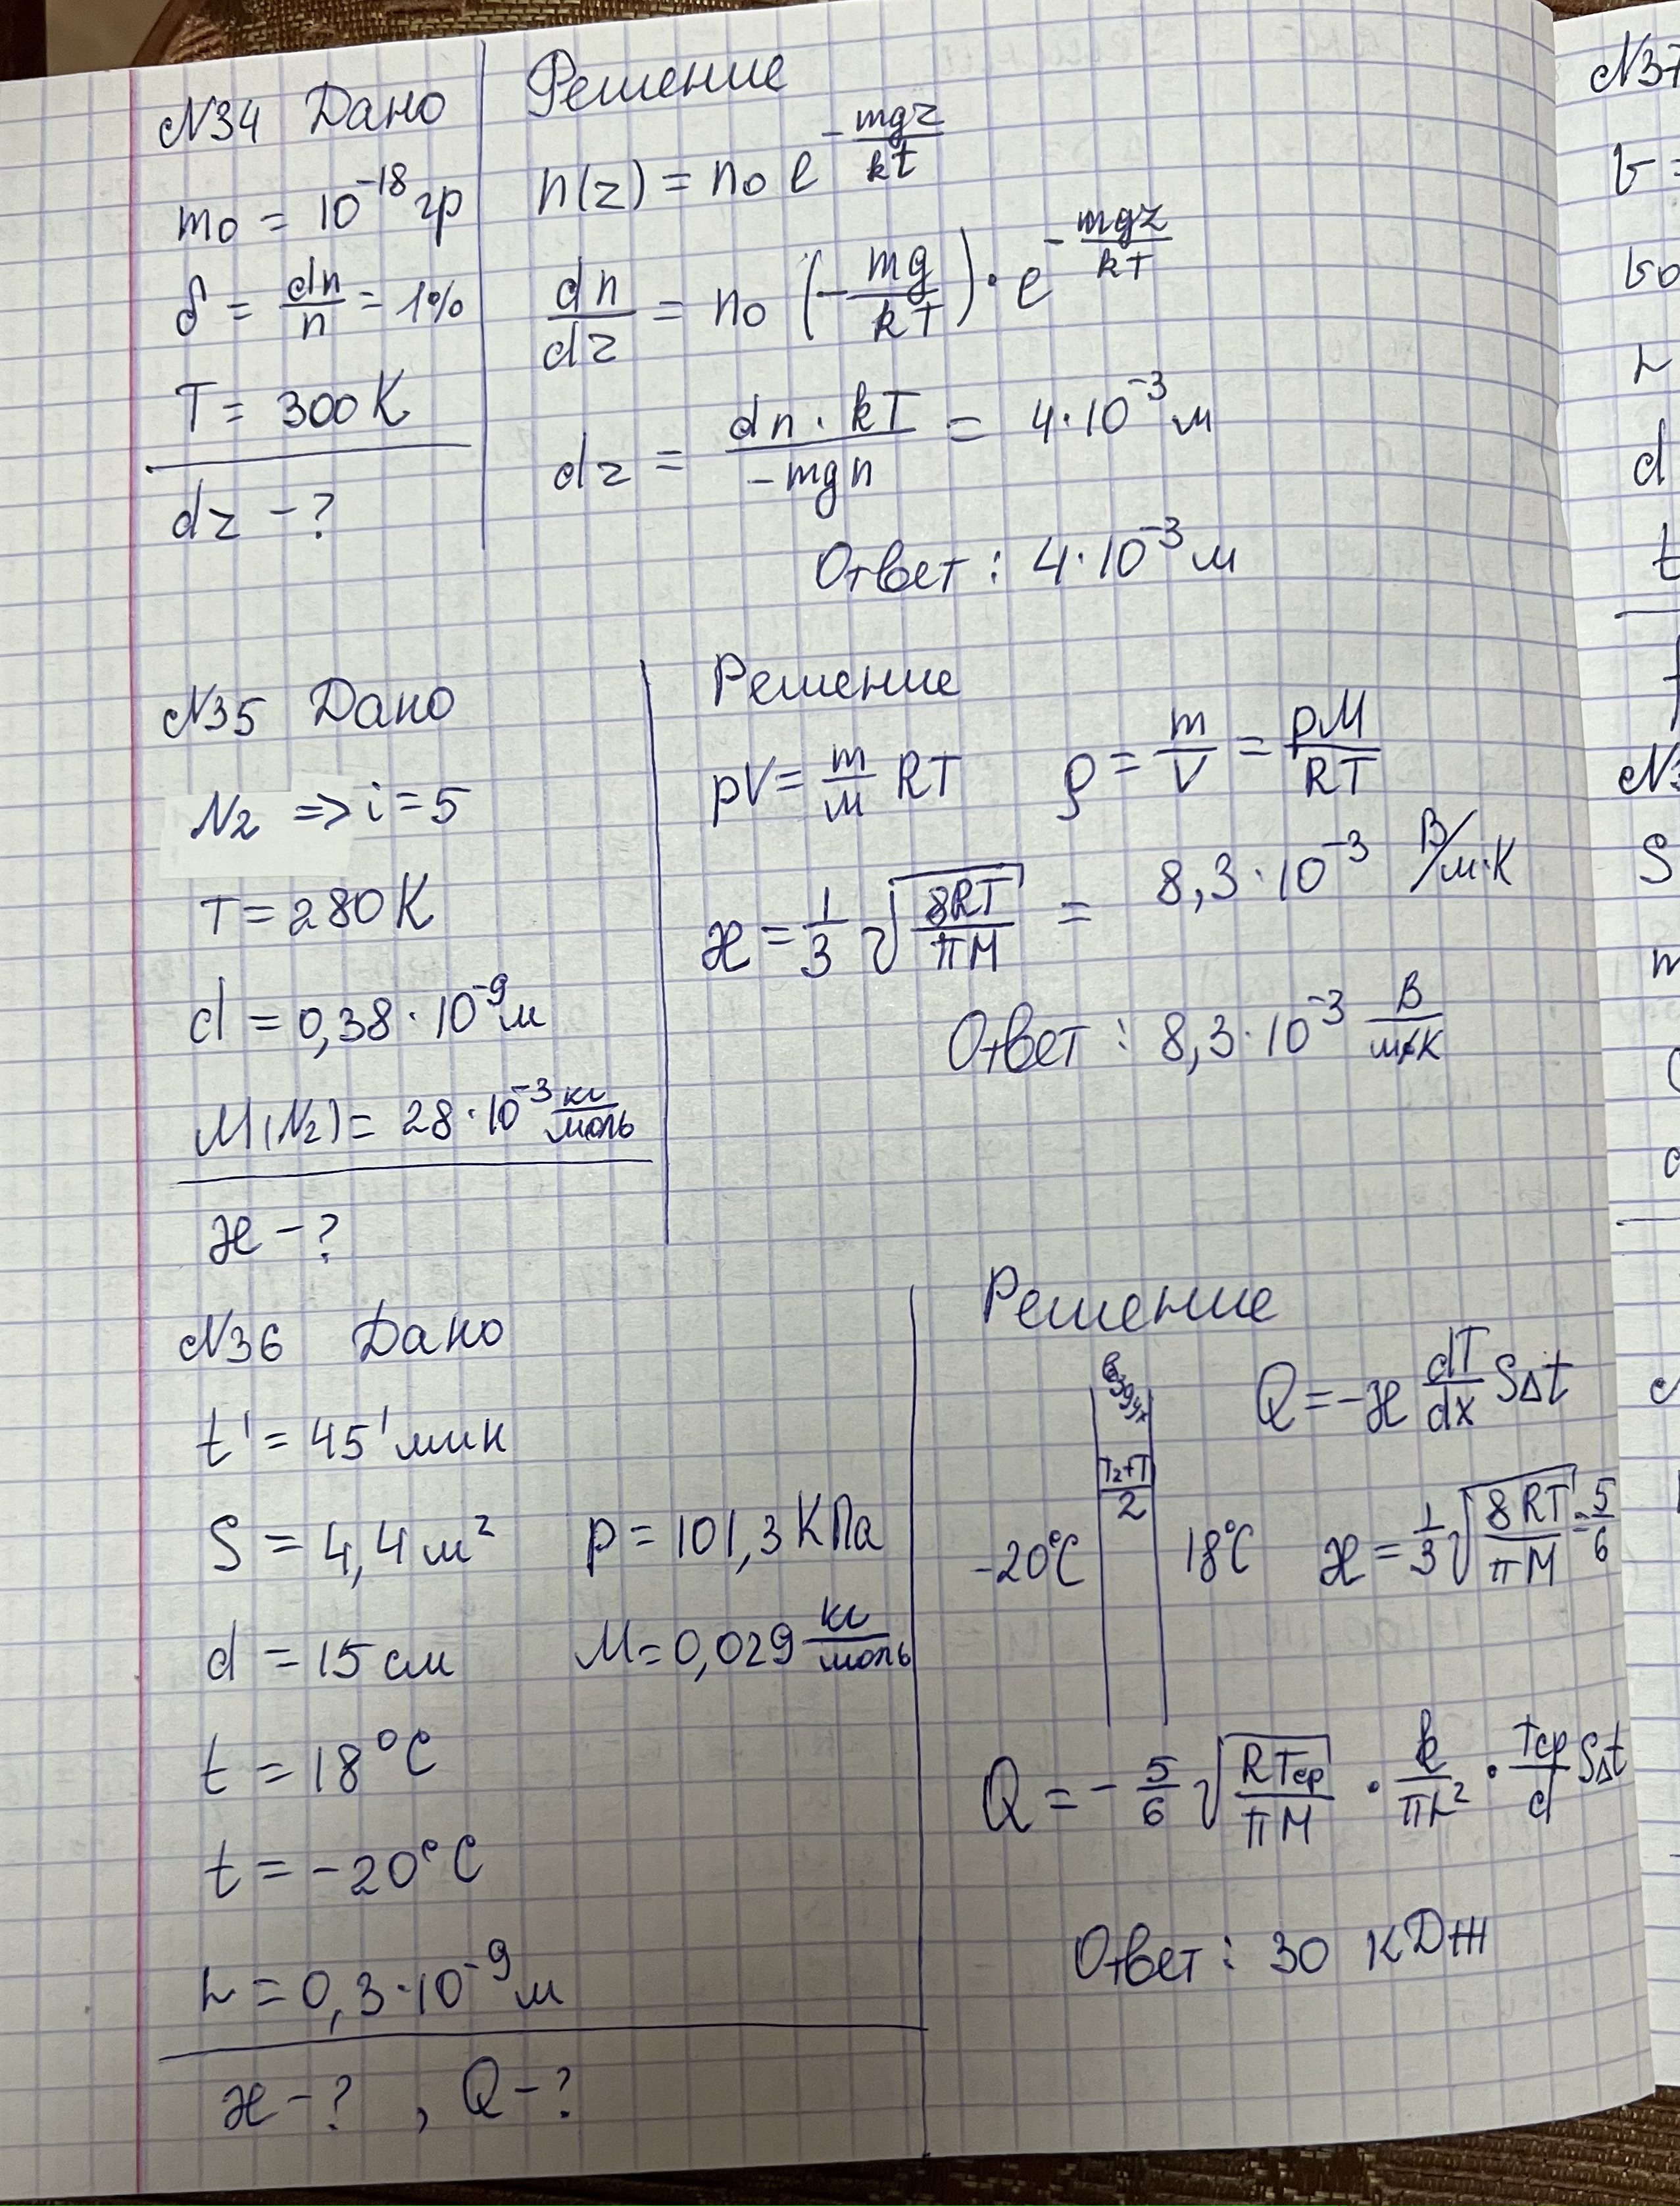 №34 Дано
m₀ = 10⁻¹⁸ гр
δ = dn/n = 1%
T = 300 K
dz - ?
Решение
n(z) = n₀ e^(-mgz/kt)
dn/dz = n₀ (-mg/kT) · e^(-mgz/kT)
dz = dn · kT / -mgn = 4·10⁻³ м
Ответ: 4·10⁻³ м
№35 Дано
N₂ => i = 5
T = 280 K
d = 0,38 · 10⁻⁹ м
M(N₂) = 28 · 10⁻³ кг/моль
æ - ?
Решение
pV = m/M RT ρ = m/V = pM/RT
æ = 1/3 √(8RT/πM) = 8,3 · 10⁻³ В/м·К
Ответ: 8,3 · 10⁻³ В/м·К
№36 Дано
t' = 45' мин
S = 4,4 м² p = 101,3 КПа
d = 15 см M = 0,029 кг/моль
t = 18°C
t = -20°C
L = 0,3 · 10⁻⁹ м
æ - ? , Q - ?
Решение
воздух
T₂+T/2
-20°C
18°C
Q = -æ dT/dx SΔt
æ = 1/3 √(8RT/πM) = 5/6
Q = - 5/6 √(RTср/πM) · k/πL² · Tср/d SΔt
Ответ: 30 КДж
№37
d
t
S
m